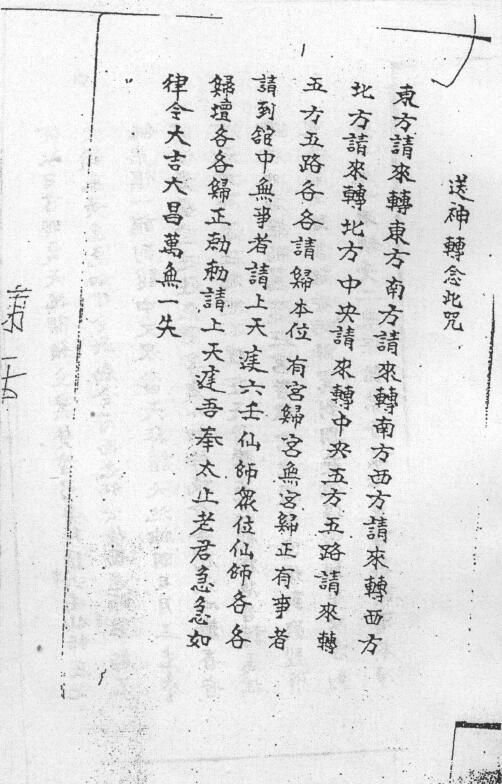 送神轉念此咒
東方請來轉東方南方請來轉南方西方請來轉西方
北方請來轉北方中央請來轉中央五方五路請來轉
五方五路各各請歸本位有宮歸宮無宮歸正有事者
請到舘中無事者請上天㕔六壬仙師眾位仙師各各
歸壇各各歸正勅勅請上天㕔吾奉太上老君急急如
律令大吉大昌萬無一失